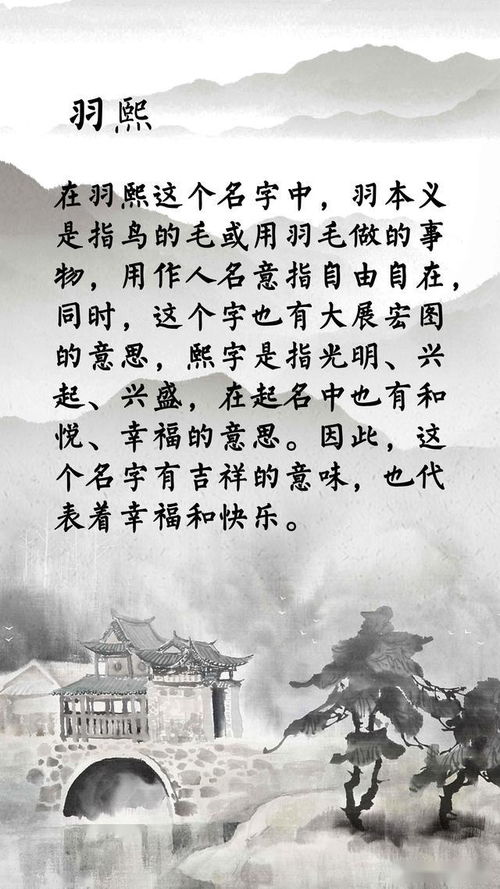 羽熙
在羽熙这个名字中，羽本义
是指鸟的毛或用羽毛做的事
物，用作人名意指自由自在，
同时，这个字也有大展宏图
的意思，熙字是指光明、兴
起、兴盛，在起名中也有和
悦、幸福的意思。因此，这
个名字有吉祥的意味，也代
表着幸福和快乐。